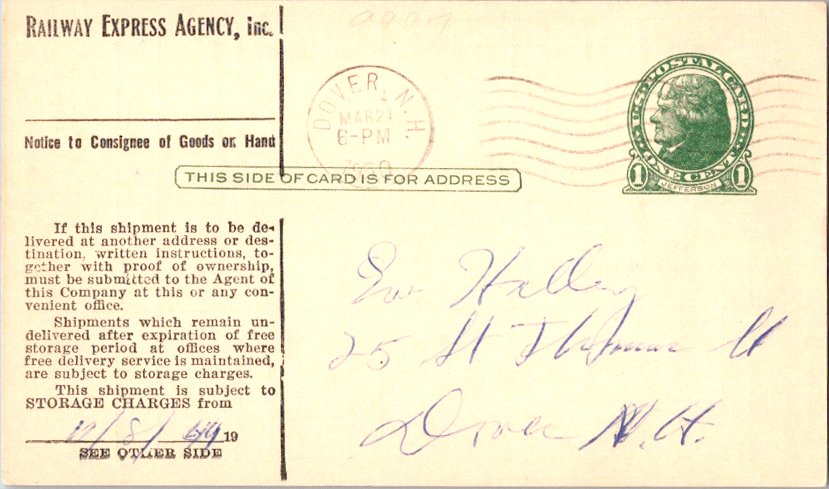 RAILWAY EXPRESS AGENCY, Inc.
Notice to Consignee of Goods on Hand
DOVER, N.H.
MAR 21
6-PM
1950
U.S. POSTAL CARD
ONE CENT
1 JEFFERSON 1
THIS SIDE OF CARD IS FOR ADDRESS
If this shipment is to be de-
livered at another address or des-
tination, written instructions, to-
gether with proof of ownership,
must be submitted to the Agent of
this Company at this or any con-
venient office.
Shipments which remain un-
delivered after expiration of free
storage period at offices where
free delivery service is maintained,
are subject to storage charges.
This shipment is subject to
STORAGE CHARGES from
19
SEE OTHER SIDE
25 St Thomas St
Dover N.H.